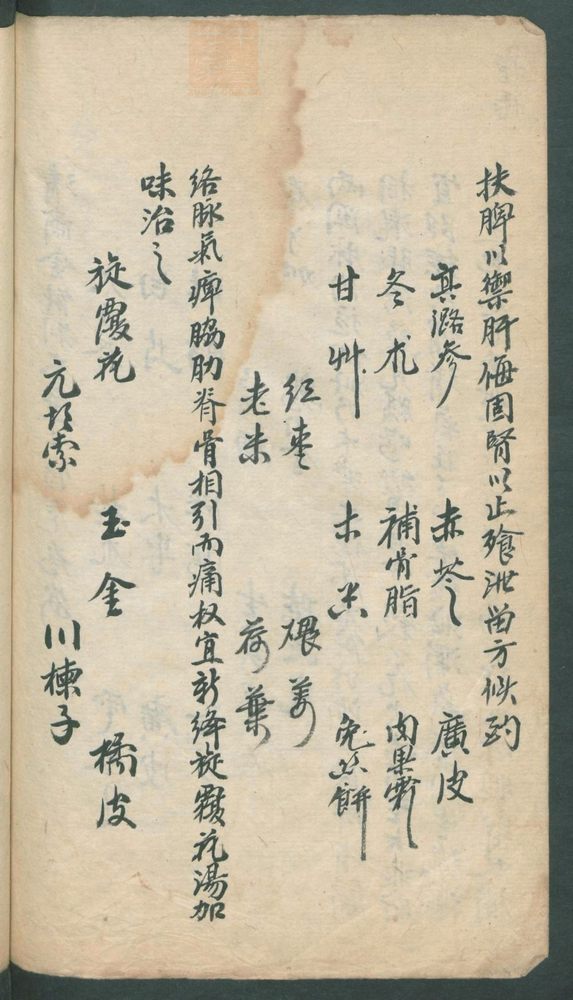 扶脾以禦肝侮固腎以止飱泄古方似均
真潞參 赤苓 廣皮
冬朮 補骨脂 肉果霜
甘艸 木瓜 兔絲餅
紅棗 煨姜
老米 荷葉
絡脉氣痺脇肋脊骨相引而痛权宜新絳旋覆花湯加
味治之
旋覆花 玉金 橘皮
元胡索 川楝子